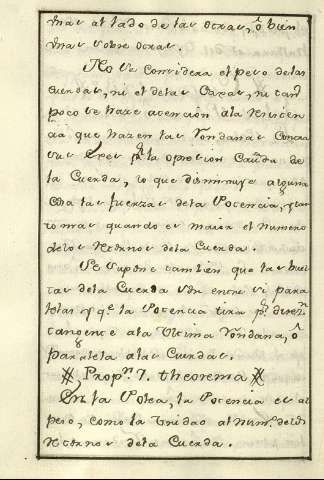 unas al lado de las otras, ô bien
unas sobre otras.
No se considera el peso de las
cuerdas, ni el de las Caxas, ni tam
poco se haze atencion a la resisten
cia que hazen las
sus Exes pr la opresion Causda de
la Cuerda, lo que disminuye alguna
cosa las fuerzas de la Potencia, y tan
to mas quando es maior el numero
de los retornos dela Cuerda.
Se supone tambien que las buel
tas dela Cuerda son entre si para
lelas y qe la Potencia tira pr direzn
tangente ala Ultima Rondana, ô
paralela alas Cuerdas.
Propn 7. theorema
En la Polea, la Potencia es al
peso, como la Unidad al numo de los
retornos dela Cuerda.